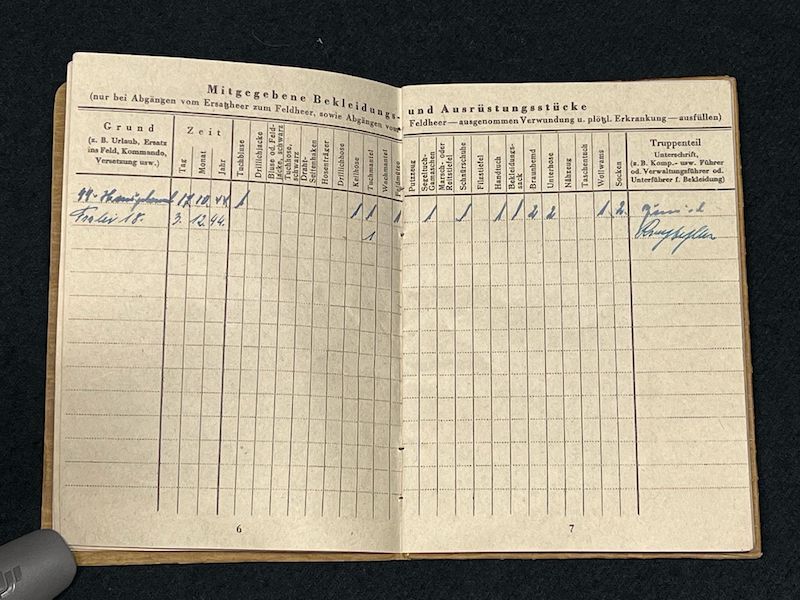 Mitgegebene Bekleidungs- und Ausrüstungsstücke
(nur bei Abgängen vom Ersatzheer zum Feldheer, sowie Abgängen vom Feldheer — ausgenommen Verwundung u. plötzl. Erkrankung — ausfüllen)
Grund
(z. B. Urlaub, Ersatz
ins Feld, Kommando,
Versetzung usw.)
Zeit
Tag
Monat
Jahr
Tuchbluse
Drillichjacke
Bluse od. Feld-
jacke schwarz
Tuchhose,
schwarz
Draht-
Seitenhaken
Hosenträger
Drillichhose
Keilhose
Tuchmantel
Wachmantel
Feldmütze
Putzzeug
Segeltuch-
Gamaschen
Marsch- oder
Reitstiefel
Schnürschuhe
Filzstiefel
Handtuch
Bekleidungs-
sack
Braunhemd
Unterhose
Nähzeug
Taschentuch
Wollwams
Socken
Truppenteil
Unterschrift,
(z. B. Komp.- usw. Führer
od. Verwaltungsführer od.
Unterführer f. Bekleidung)
17. 10. 44 1 1 1 1 1 1 1 1 2 2 1 2
18. 3. 12. 44. 1
6
7